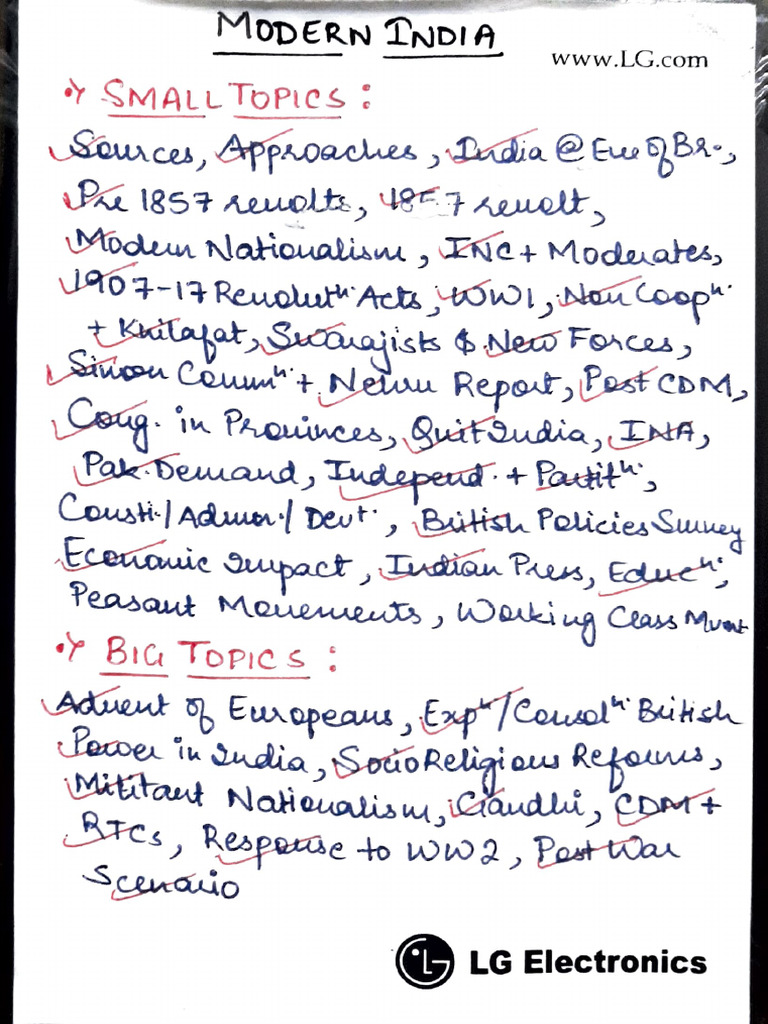 MODERN INDIA
www.LG.com
SMALL TOPICS :
Sources, Approaches, India @ Eve of Br.,
Pre 1857 revolts, 1857 revolt,
Modern Nationalism, INC + Moderates,
1907-17 Revolutn. Acts, WW1, Non Coopn.
+ Khilafat, Swarajists & New Forces,
Simon Commn. + Nehru Report, Post CDM,
Cong. in Provinces, Quit India, INA,
Pak. Demand, Independ. + Partitn.,
Consti./Admn./Devt., British Policies Survey
Economic Impact, Indian Press, Educn.,
Peasant Movements, Working Class Mvmt
BIG TOPICS :
Advent of Europeans, Expn/Consoln. British
Power in India, Socio Religious Reforms,
Militant Nationalism, Gandhi, CDM +
RTCs, Response to WW2, Post War
Scenario
LG Electronics